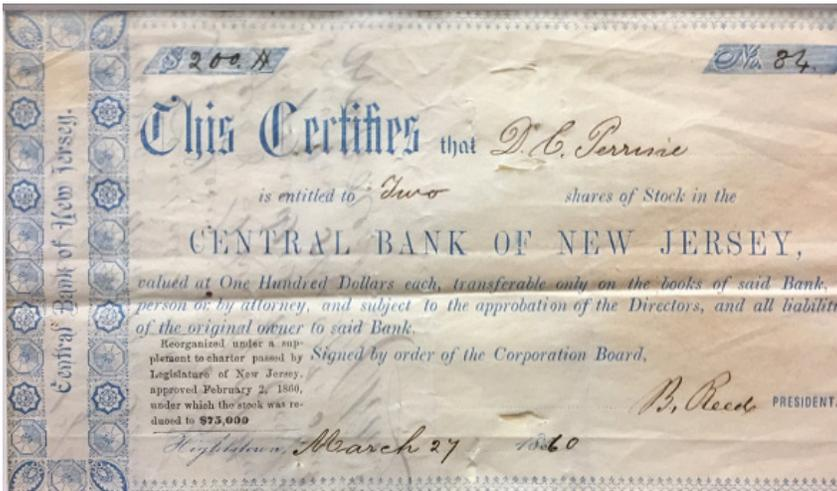 Central Bank of New Jersey.
$ 200.
No. 84.
This Certifies that D. C. Perrine
is entitled to Two shares of Stock in the
CENTRAL BANK OF NEW JERSEY,
valued at One Hundred Dollars each, transferable only on the books of said Bank,
person or by attorney, and subject to the approbation of the Directors, and all liabilit
of the original owner to said Bank.
Reorganized under a sup-
plement to charter passed by
Legislature of New Jersey,
approved February 2, 1860,
under which the stock was re-
duced to $75,000
Signed by order of the Corporation Board,
B. Reed PRESIDENT.
Hightstown, March 27 1860